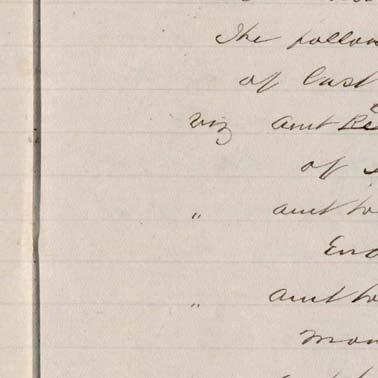 The follow
of Cast
viz amt Re
of
" amt to
End
" amt to
Mon